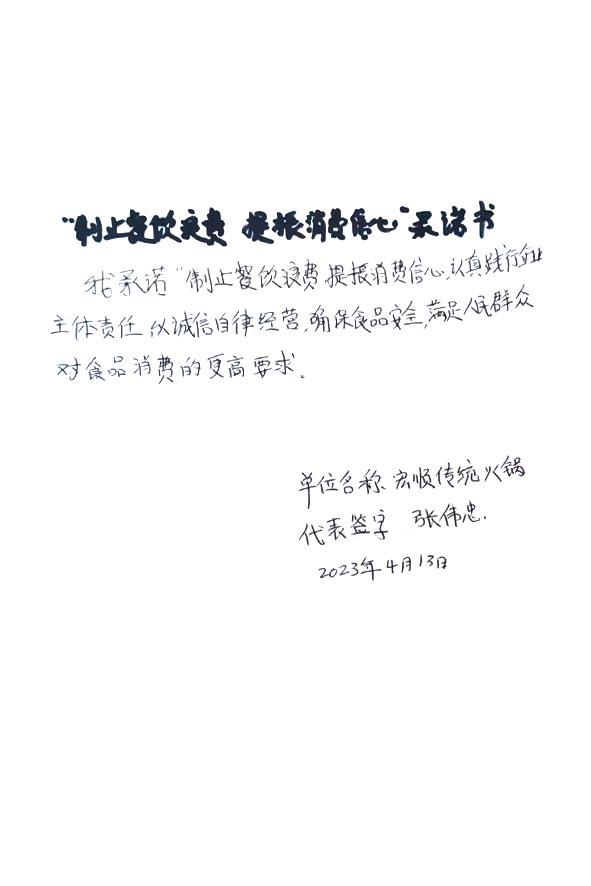 “制止餐饮浪费 提振消费信心”承诺书
我承诺“制止餐饮浪费 提振消费信心,认真践行企业
主体责任 以诚信自律经营,确保食品安全,满足人民群众
对食品消费的更高要求。
单位名称 宏顺传统火锅
代表签字 张伟忠.
2023年4月13日